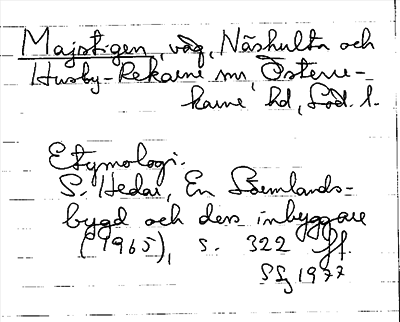 Majstigen, väg, Näshulta och
Husby-Rekarne snr, Österre-
karne hd, Söd. l.
Etymologi.
S. Hedar, En Sörmlands-
bygd och dess inbyggare
(1965), s. 322 ff.
1977